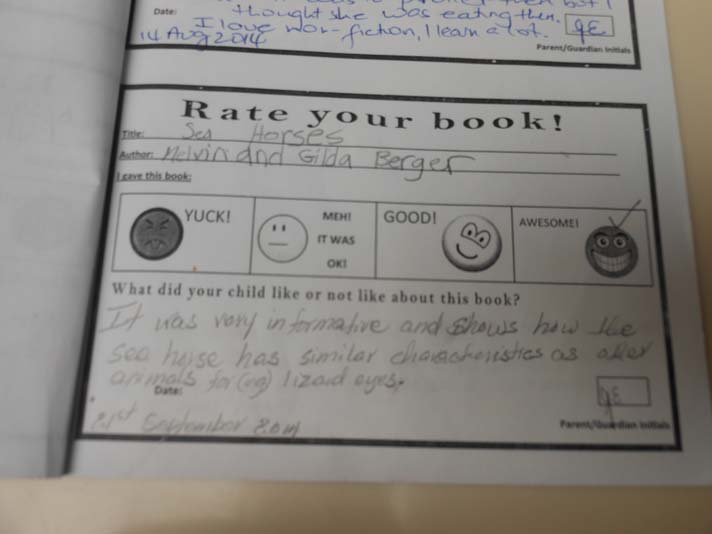 thought she was eating them.
I love non-fiction, I learn a lot.
Date:
14 Aug 2014
gE
Parent/Guardian Initials
Rate your book!
Title: Sea Horses
Author: Melvin and Gilda Berger
I gave this book:
YUCK!
MEH!
IT WAS
OK!
GOOD!
AWESOME!
What did your child like or not like about this book?
It was very informative and shows how the
sea horse has similar characteristics as other
animals for (eg) lizard eyes.
Date:
gE
21st September 2014
Parent/Guardian Initials